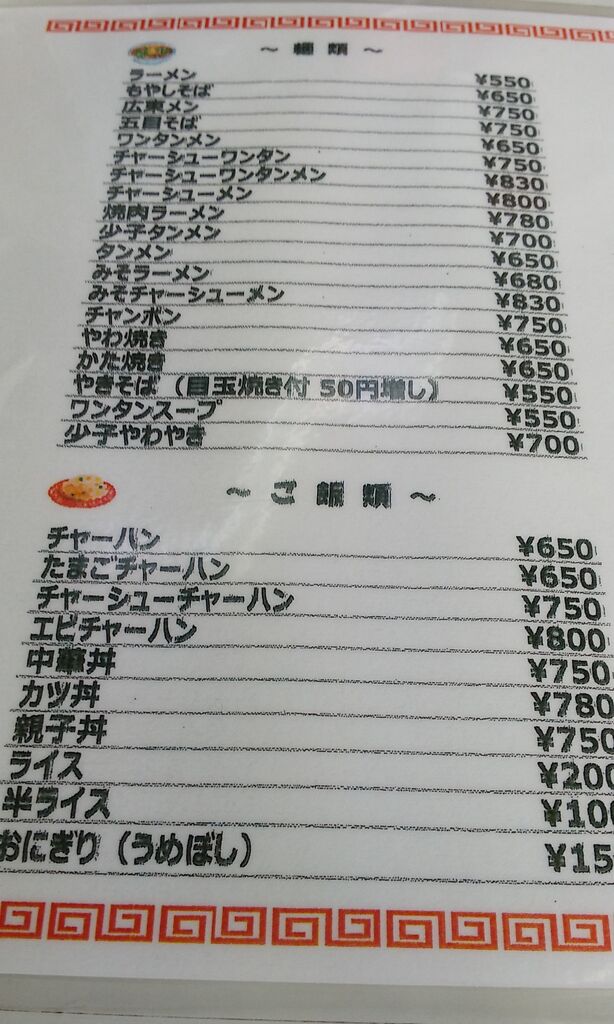 ～ 麺 類 ～
ラーメン ¥550
もやしそば ¥650
広東メン ¥750
五目そば ¥750
ワンタンメン ¥650
チャーシューワンタン ¥750
チャーシューワンタンメン ¥830
チャーシューメン ¥800
焼肉ラーメン ¥780
少子タンメン ¥700
タンメン ¥650
みそラーメン ¥680
みそチャーシューメン ¥830
チャンポン ¥750
やわ焼き ¥650
かた焼き ¥650
やきそば（目玉焼き付 50円増し） ¥550
ワンタンスープ ¥550
少子やわやき ¥700
～ ご 飯 類 ～
チャーハン ¥650
たまごチャーハン ¥650
チャーシューチャーハン ¥750
エビチャーハン ¥800
中華丼 ¥750
カツ丼 ¥780
親子丼 ¥750
ライス ¥200
半ライス ¥100
おにぎり（うめぼし） ¥15